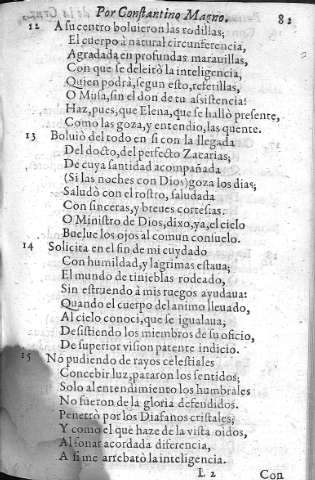 Por Constantino Magno. 82
12 A su centro boluieron las rodillas,
El cuerpo à natural circunferencia,
Agradada en profundas marauillas,
Con que se deleitò la inteligencia,
Quien podrà, segun esto, referillas,
O Musa, sin el don de tu assistencia!
Haz, pues, que Elena, que se hallò presente,
Como las goza, y entendio, las quente.
13 Boluiò del todo en si con la llegada
Del docto, del perfecto Zacarias;
De cuya santidad acompañada
(Si las noches con Dios) goza los dias;
Saludò con el rostro, saludada
Con sinceras, y breues cortesias.
O Ministro de Dios, dixo, ya, el cielo
Buelue los ojos al comun consuelo.
14 Solicita en el fin de mi cuydado
Con humildad, y lagrimas estaua;
El mundo de tinieblas rodeado,
Sin estruendo à mis ruegos ayudaua:
Quando el cuerpo del animo lleuado,
Al cielo conoci, que se igualaua;
Desistiendo los miembros de su oficio,
De superior vision patente indicio.
15 No pudiendo de rayos celestiales
Concebir luz, pararon los sentidos;
Solo al entendimiento los humbrales
No fueron de la gloria defendidos.
Penetrò por los Diafanos cristales;
Y como el que haze de la vista oidos,
Al sonar acordada diferencia,
A si me arrebatò la inteligencia.
L 2 Con